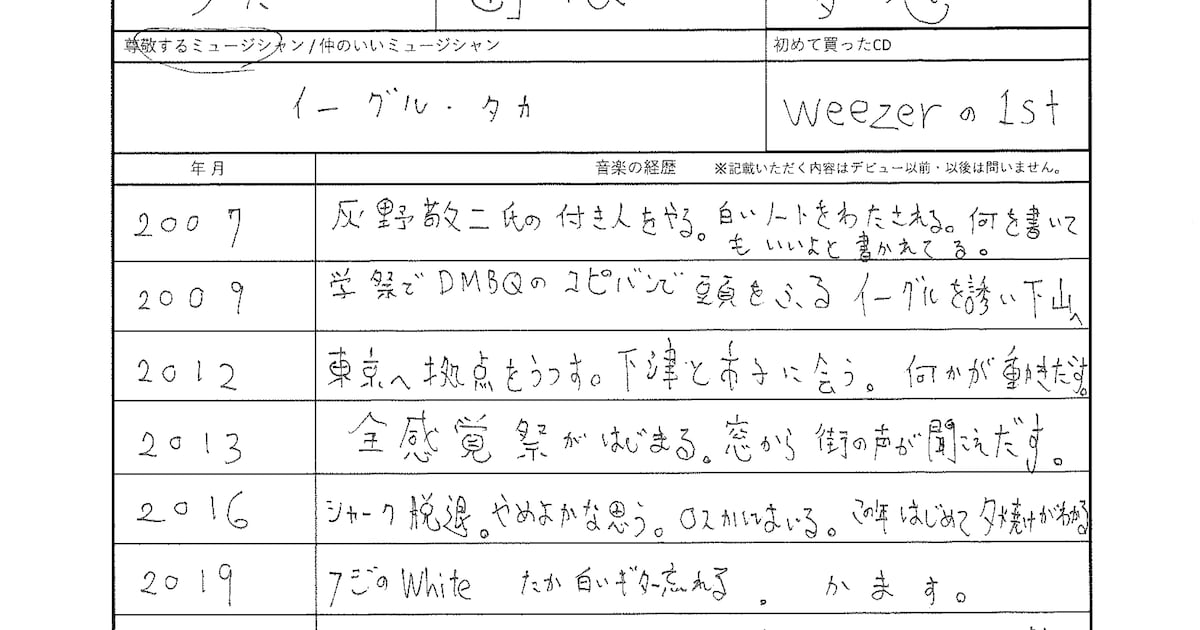 尊敬するミュージシャン / 仲のいいミュージシャン
初めて買ったCD
イーグル・タカ
weezerの1st
年月
音楽の経歴 ※記載いただく内容はデビュー以前・以後は問いません。
2007
灰野敬二氏の付き人をやる。白いノートをわたされる。何を書いて
もいいよと書かれてる。
2009
学祭でDMBQのコピバンで頭をふるイーグルを誘い下山へ
2012
東京へ拠点をうつす。下津と市子に会う。何かが動きだす。
2013
全感覚祭がはじまる。窓から街の声が聞こえだす。
2016
シャーク脱退。やめよかな思う。ロスカルにまいる。この年はじめて夕焼けがわかる
2019
フジのWhite たか白いギター忘れる. かます。